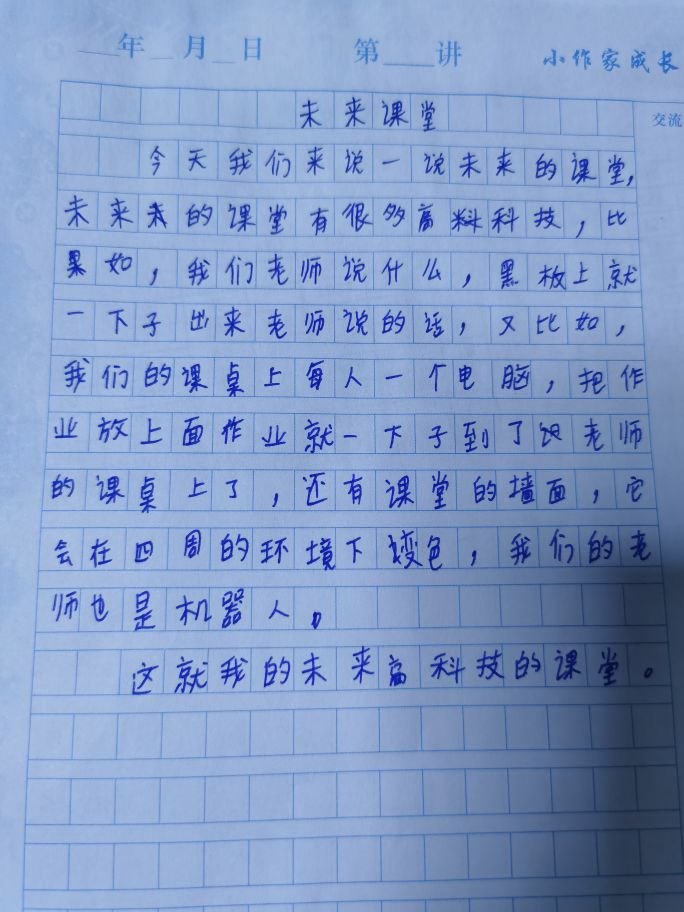 年 月 日 第 讲 小作家成长
交流
未来课堂
今天我们来说一说未来的课堂，
未来的课堂有很多高科技，比
如，我们老师说什么，黑板上就
一下子出来老师说的话，又比如，
我们的课桌上每人一个电脑，把作
业放上面作业就一下子到了老师
的课桌上了，还有课堂的墙面，它
会在四周的环境下变色，我们的老
师也是机器人。
这就我的未来高科技的课堂。